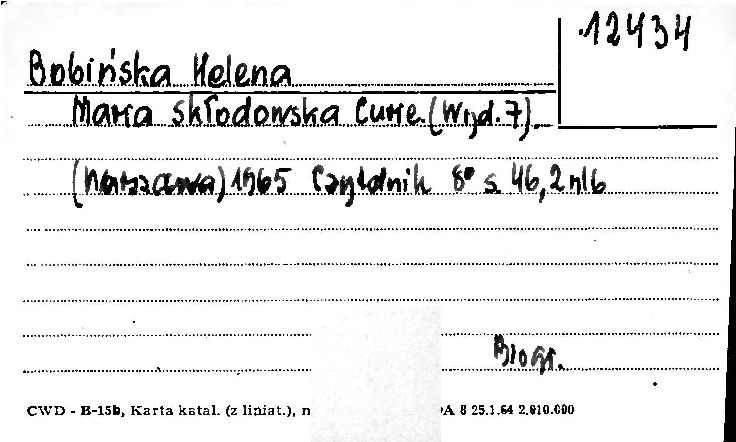 12434
Bobińska Helena
Maria Skłodowska Curie. (Wyd. 7)
(Warszawa) 1965 Czytelnik 8° s. 46, 2 nlb
Biogr.
CWD - B-15b, Karta katal. (z liniat.), n
A 8 25.1.64 2.010.000